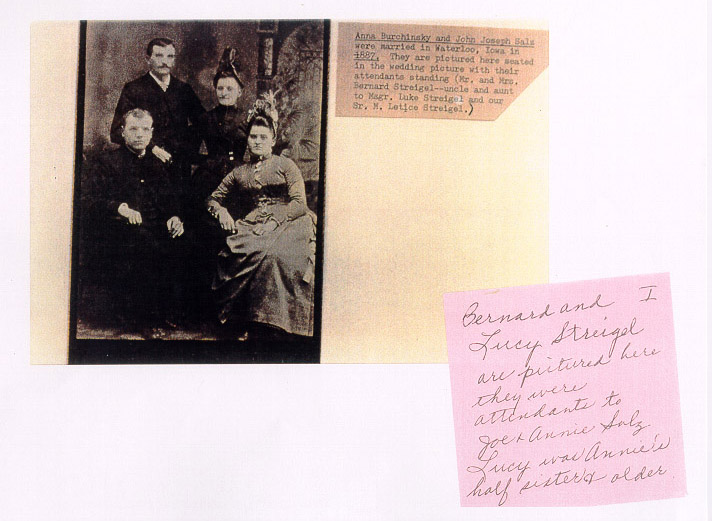 Anna Burchinsky and John Joseph Salz
were married in Waterloo, Iowa in
1887. They are pictured here seated
in the wedding picture with their
attendants standing (Mr. and Mrs.
Bernard Streigel--uncle and aunt
to Msgr. Luke Streigel and our
Sr. M. Letice Streigel.)
Bernard and I
Lucy Streigel
are pictured here
they were
attendants to
Joe & Annie Salz
Lucy was Annie's
half sister & older.